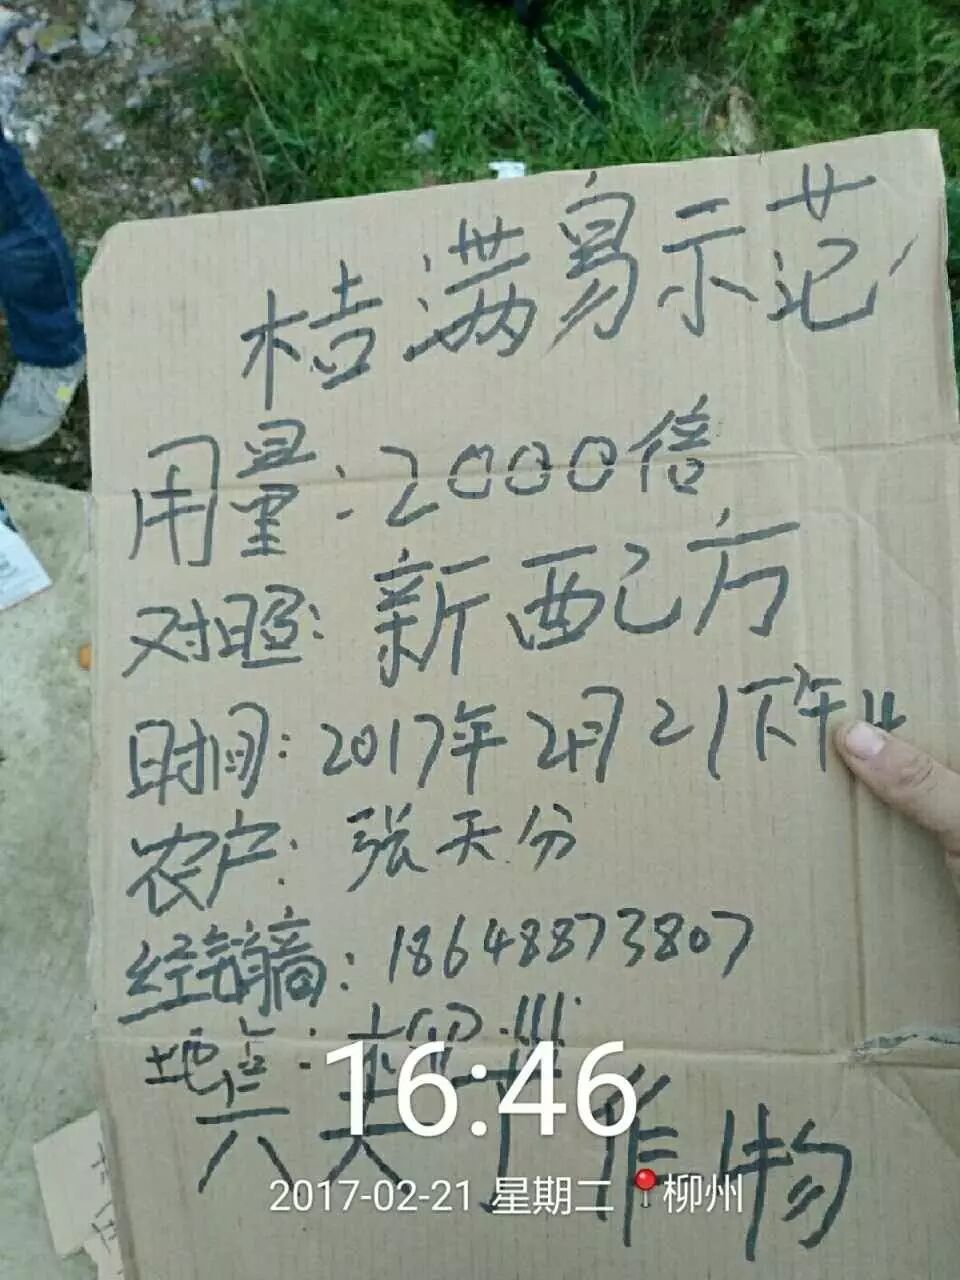 桔满易示范
用量:2000倍
对照:新配方
时间:2017年2月21下午4
农户:张天分
经销商:18648873807
地点:
六天丁作物
16:46
2017-02-21 星期二 柳州